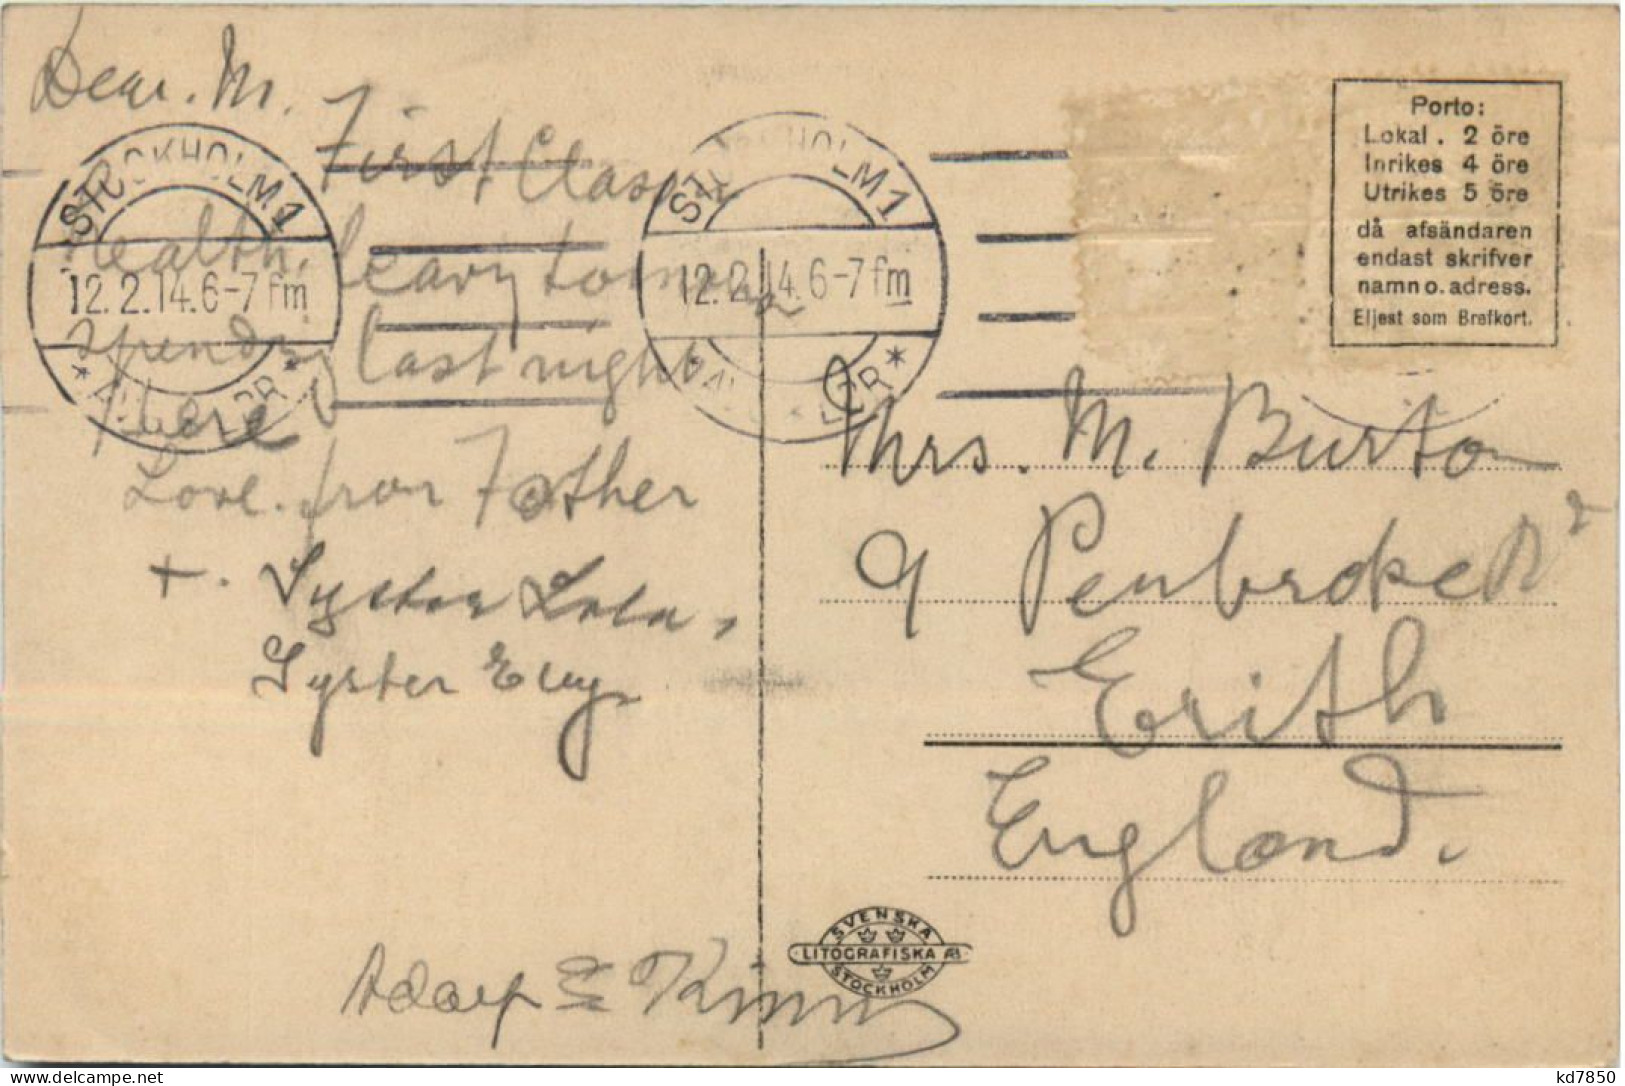 Dear. M.
First Class
health, leavy tomorra
spending last night
here
Love. from Father
+. Syster Lola,
Syster Elly
Adolf E Kinn
STOCKHOLM 1
12.2.14.6-7 fm
STOCKHOLM 1
12.2.14.6-7 fm
Porto:
Lokal . 2 öre
Inrikes 4 öre
Utrikes 5 öre
då afsändaren
endast skrifver
namn o. adress.
Eljest som Brefkort.
Mrs. M. Burton
9 Penbroke Rd
Erith
England.
SVENSKA
LITOGRAFISKA AB.
STOCKHOLM
www.delcampe.net
kd7850